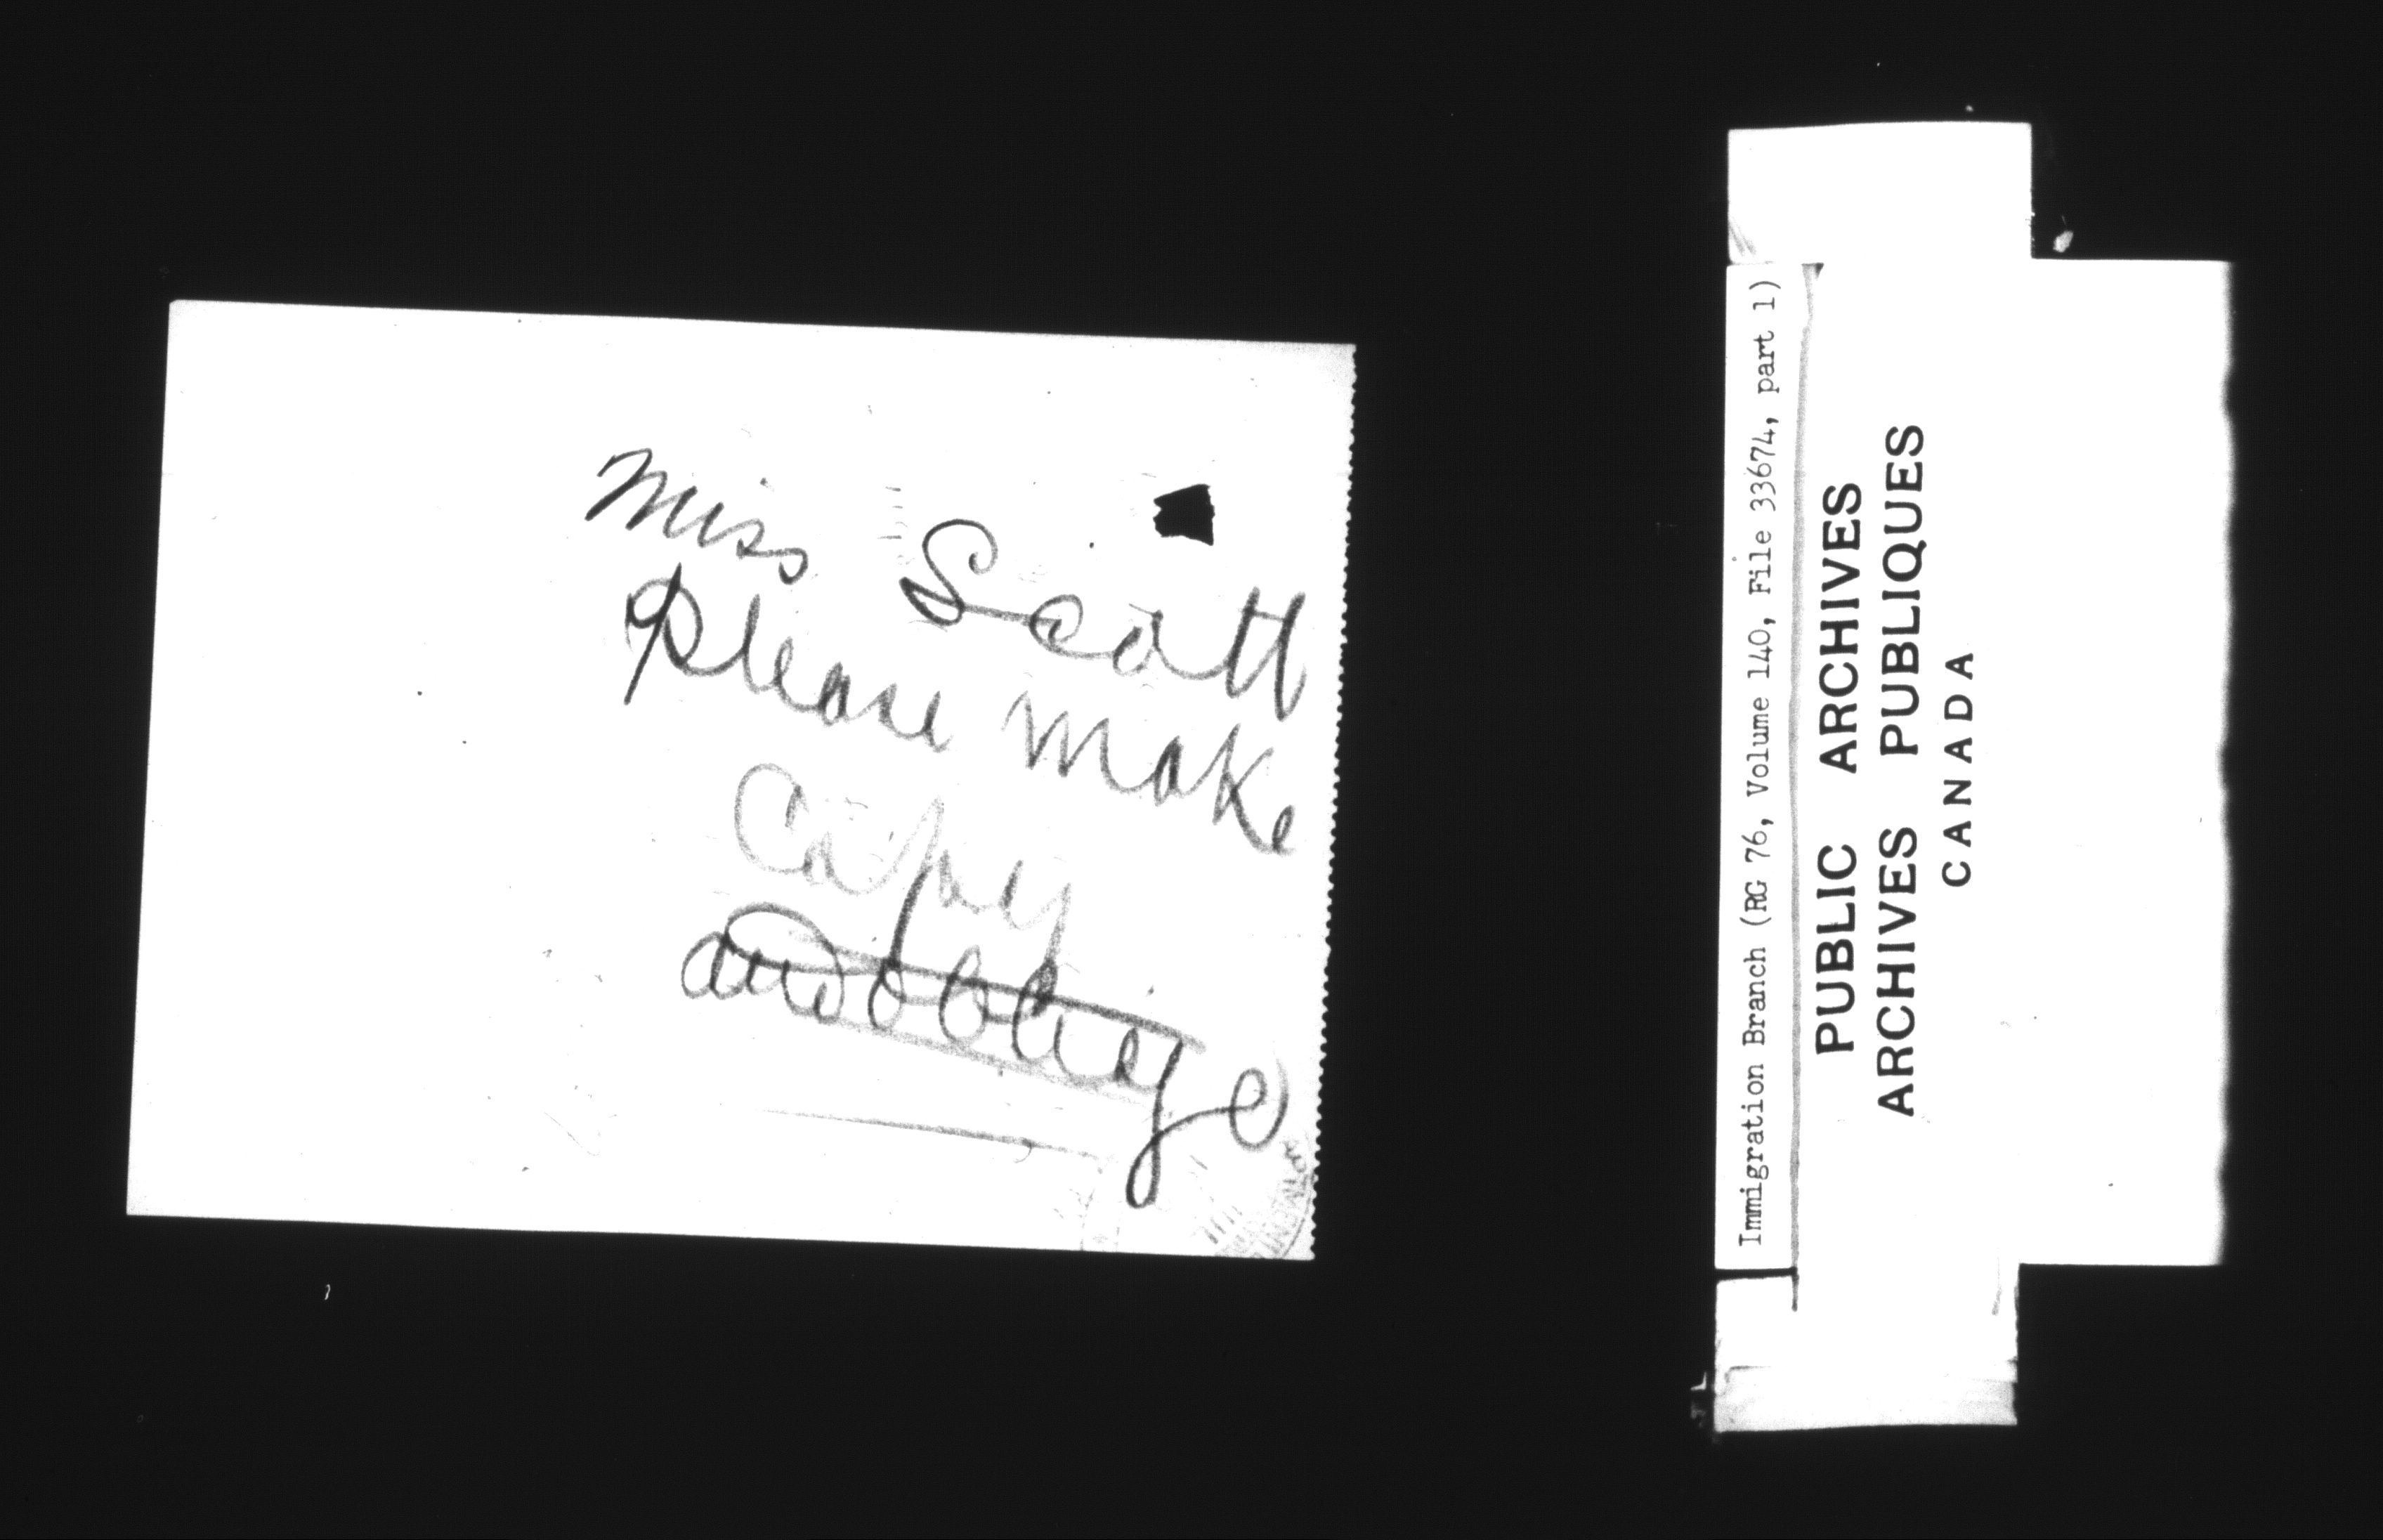 Miss Scott
Please make
Copy
and oblige
Immigration Branch (RG 76, Volume 140, File 33674, part 1)
PUBLIC ARCHIVES
ARCHIVES PUBLIQUES
CANADA